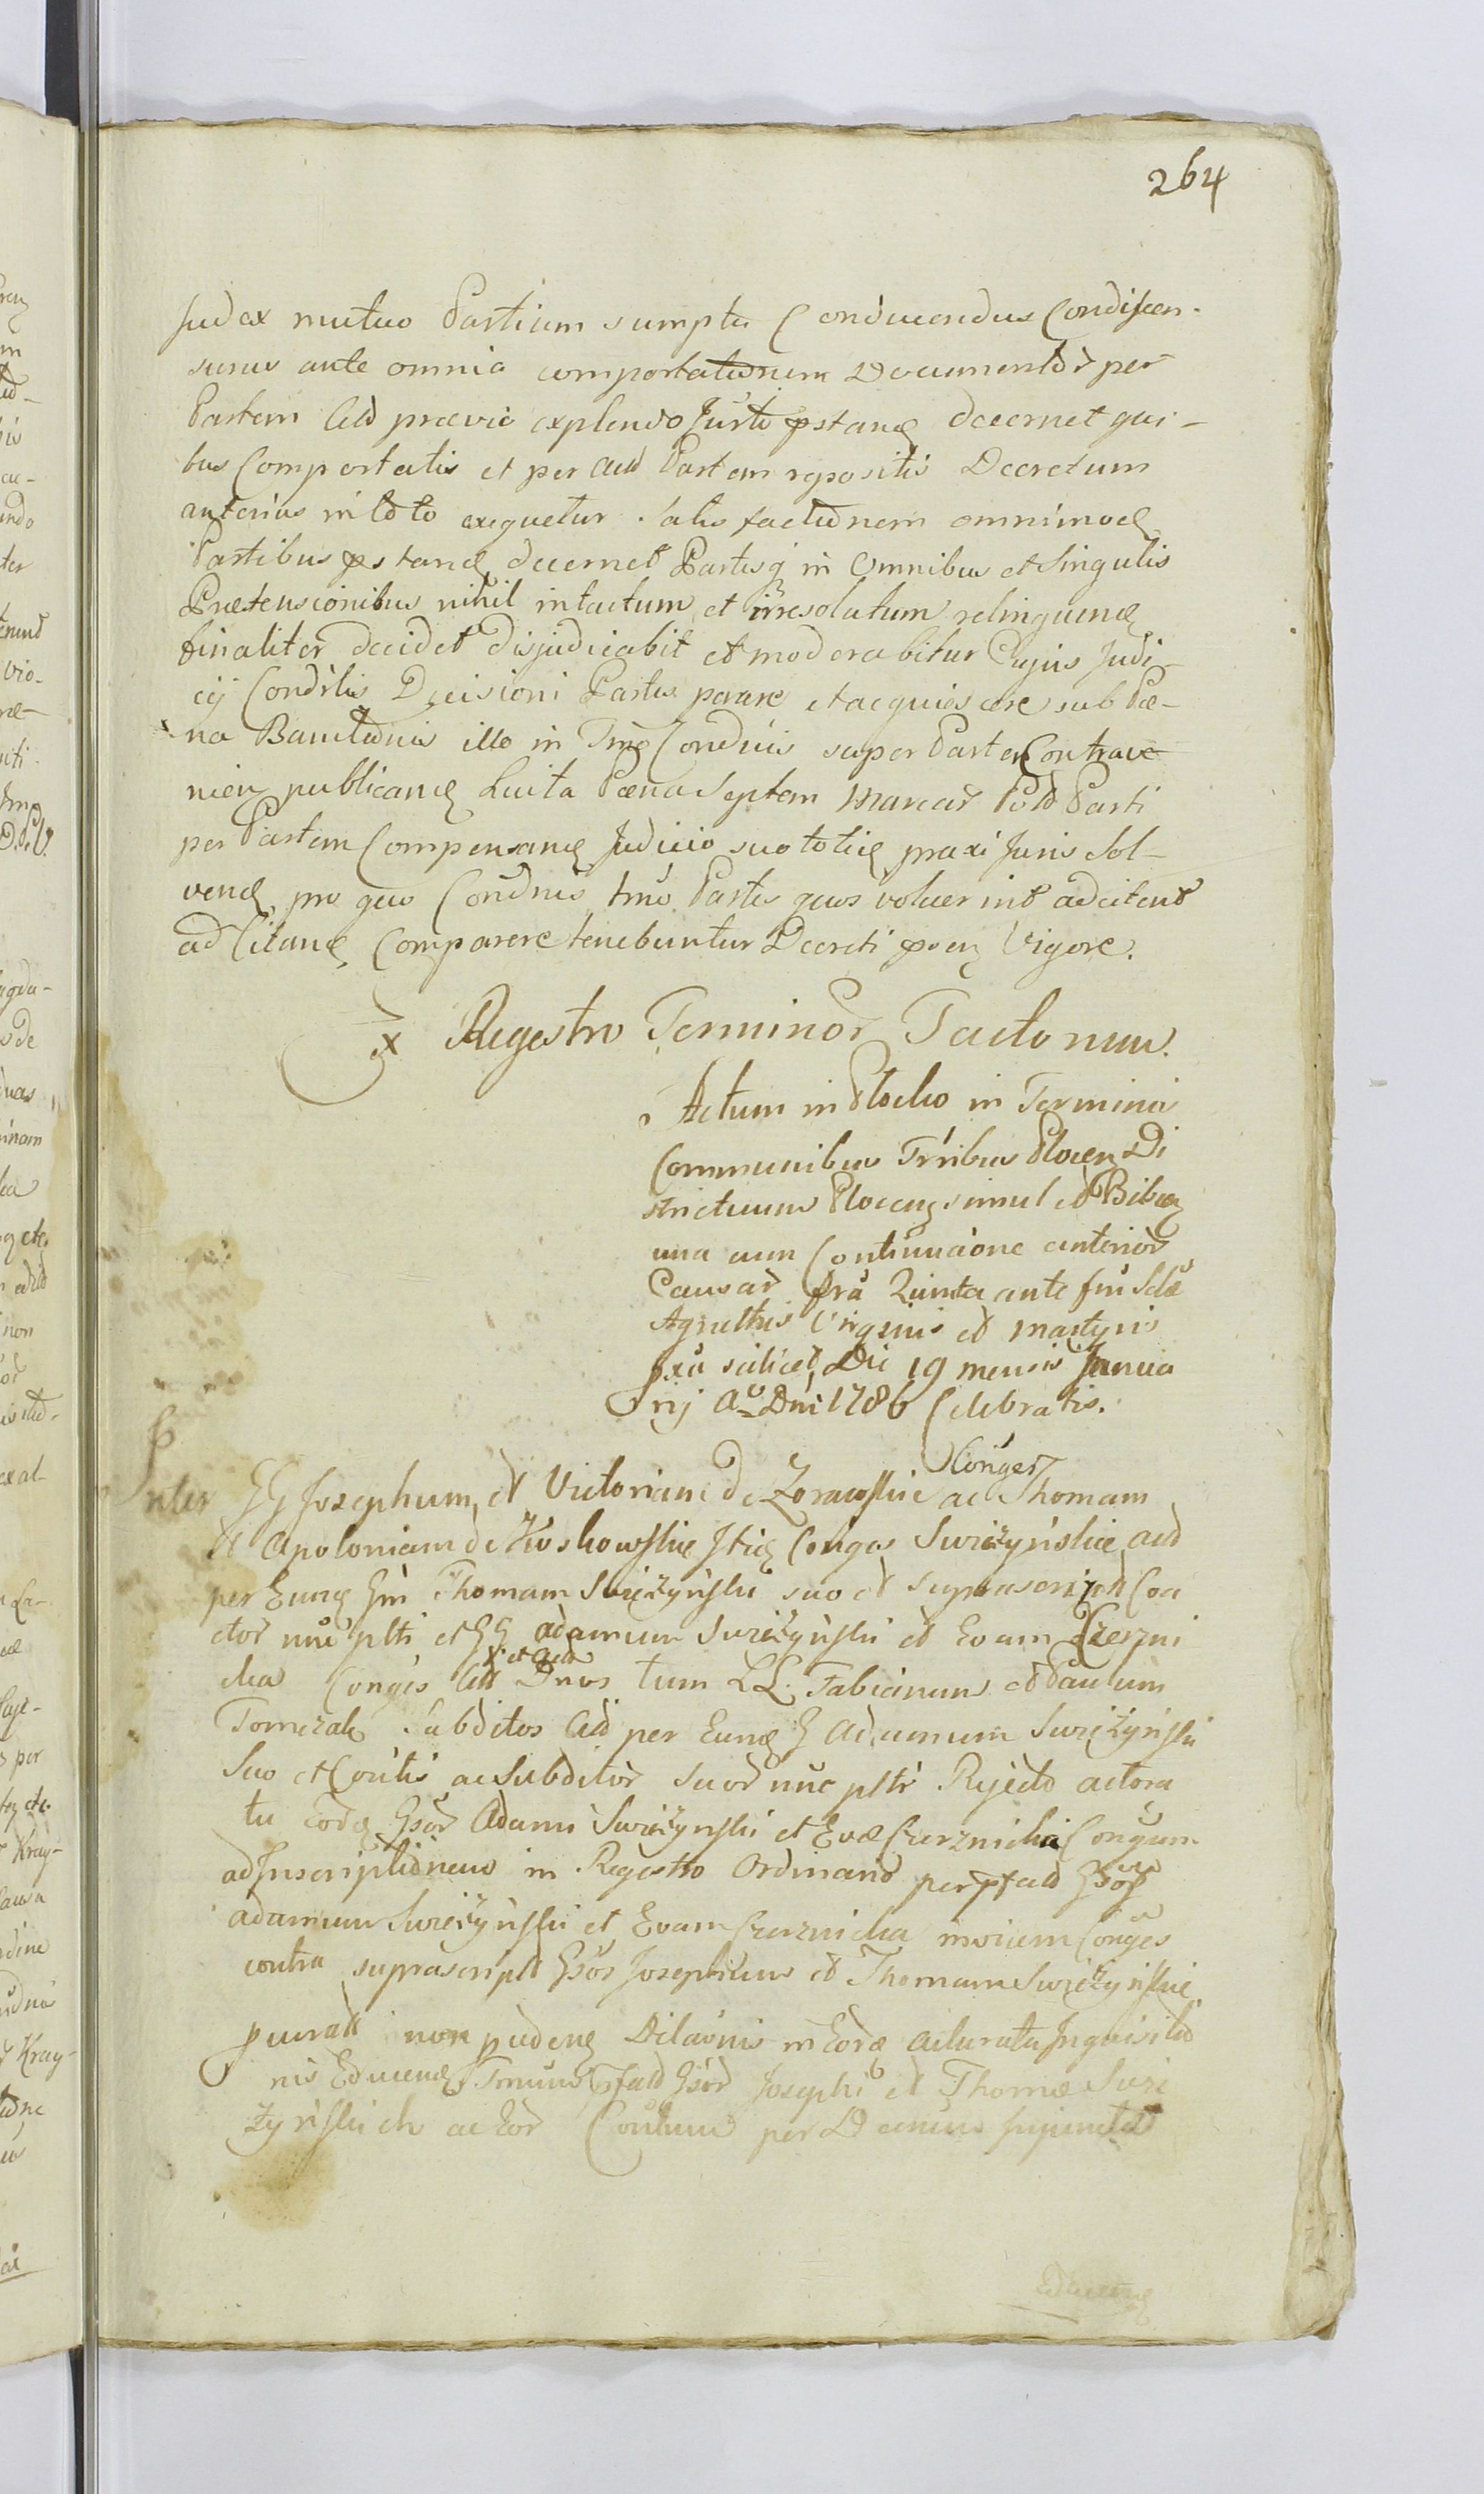 264
Judex mutuo Partium sumptu Conducendus Condescen-
surus ante omnia comportationem Documentor per
Partem Citt prævio explendo Jurto pstand decernet qui-
bus Comportatis et per Citt Partem repositis Decretum
anterius in toto exequetur Satisfactionem omnimod
Partibus pstand decernet Partesq in Omnibus et Singulis
Prætensionibus nihil intactum et irresolutum relinquend
finaliter decidet disjudicabit et moderabitur Cujus Judi-
cij Condilis Decisioni Partes parare et acquiescere sub Pœ-
na Bannitionis illo in Tmo Condilis super Parte Contrave
nien publicand Luita Pœna Septem Marcar Pold Parti
per Partem Compensand Judicio suo totid praxi Juris Sol-
vend pro quo Condnis tmo Partes quos voluerint adcitent
ad Citand Comparere tenebuntur Decreti pnen Vigore.
Ex Regestro Terminor Tactorum.
Actum in Plocko in Terminis
Communibus Trribus Plocen Di
strictuum Plocen simul et Bilscen
una cum Continuaone anterior
Causar fria Quinta ante fm Sctæ
Agnethis Virginis et Martyris
pxa scilicet Die 19 mensis Janua
rij Ao Dni 1786 Celebratis.
Conges
Inter GG Josephum et Victoriam de Zorawskie ac Thomam
et Apoloniam de Koskowskie Itid Conges Swieżyńskie act
per Eund Gm Thomam Swieżyński suo et suprascript Coa
ctor nnc plti et GG Adamum Swieżyński et Evam Czerzni
x et act
cka Conges Citt Dnos tum LL. Fabianum et Paulum
Tomczak Subditos Citt per Eund G Adamum Swieżyński
Suo et Contis ac Subditor suor nnc pltr Rejecto actora
tu eord Gsor Adami Swieżyński et Evæ Czerznicka Congum
ad Inscriptionem in Regestro Ordinario per pfatt Gsos
Adamum Swieżyński et Evam Czerznicka invicem Conges
contra suprascript Gsos Josephum et Thomam Swieżyńskie
pcuratt non pudend Dilaonis in Eord acturatu Inquisitio
nis Educend Tmum pfatt Gsor Josephi et Thomæ Swie
żyńskich ac Eor Contum per Decretum Injunctæ
Educend